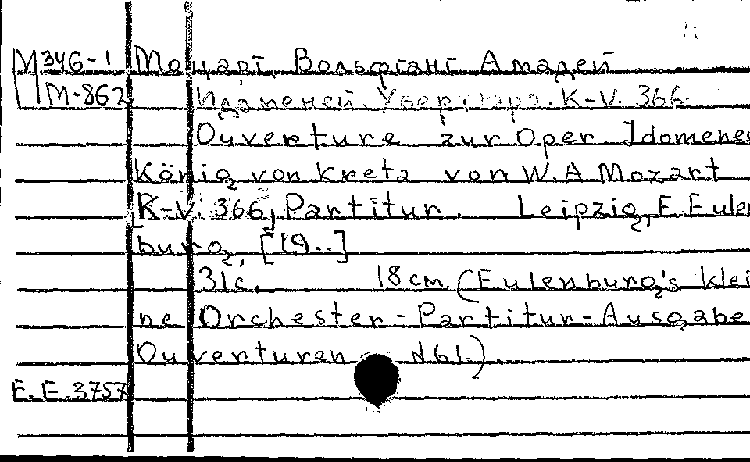 М346-1 Моцарт, Вольфганг Амадей
М-862 Идоменей. Увертюра. К-V. 366.
Ouverture zur Oper Idomenes
König von Kreta von W.A Mozart
K-V. 366, Partitur. Leipzig, E. Eulen
burg, [19..]
31с. 18 cm (Eulenburg's klei
ne Orchester-Partitur-Ausgabe
Ouverturen N61.)
E.E.3757